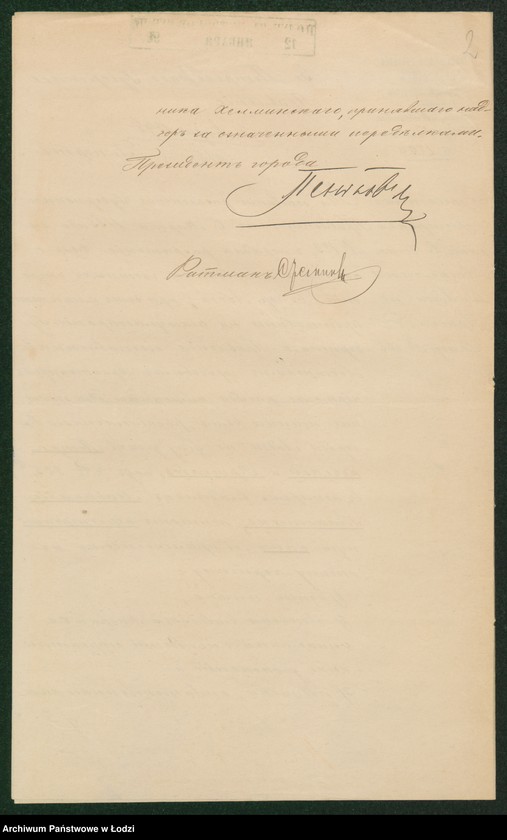 2
ника Хелминскаго, принявшаго над-
зоръ за означенными передѣлками.
Президентъ города
Пеньковскій
Ратманъ
Archiwum Państwowe w Łodzi